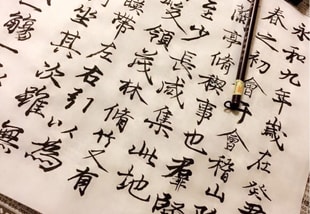 永和九年歲在癸
春之初會于會稽山
蘭亭脩稧事也羣
至少長咸集此地
領茂林脩竹又有
帶左右引以為
坐其次雖無
一